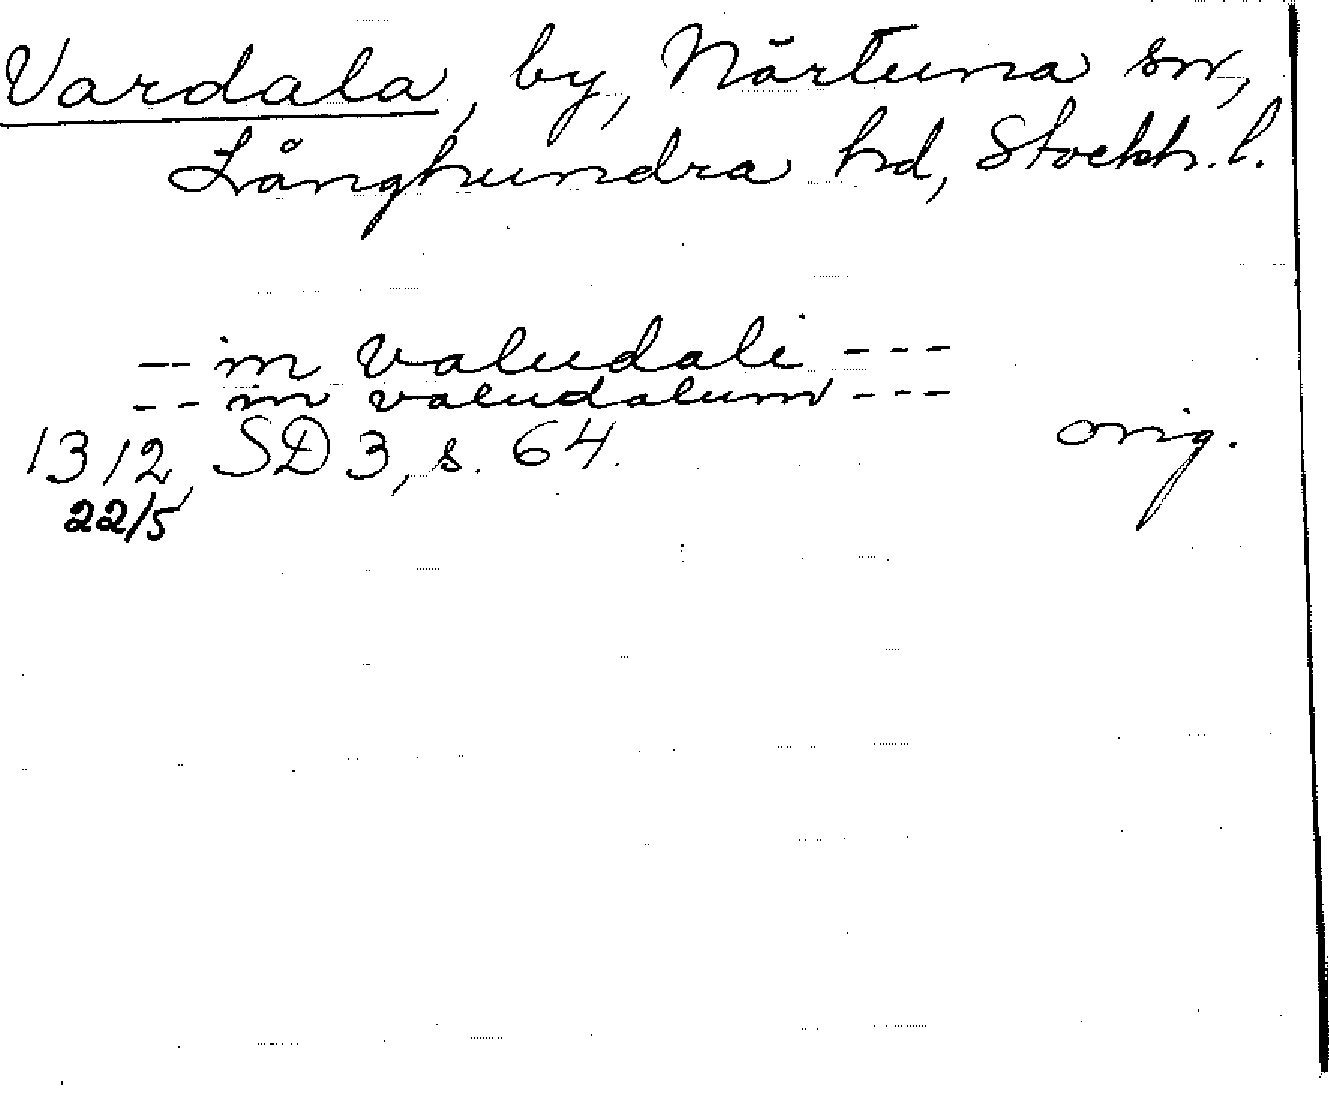 Vardala, by, Närtuna sn,
Långhundra hd, Stockh. l.
-- in valudali ---
-- in valudalum ---
1312 SD 3, s. 64. orig.
22/5